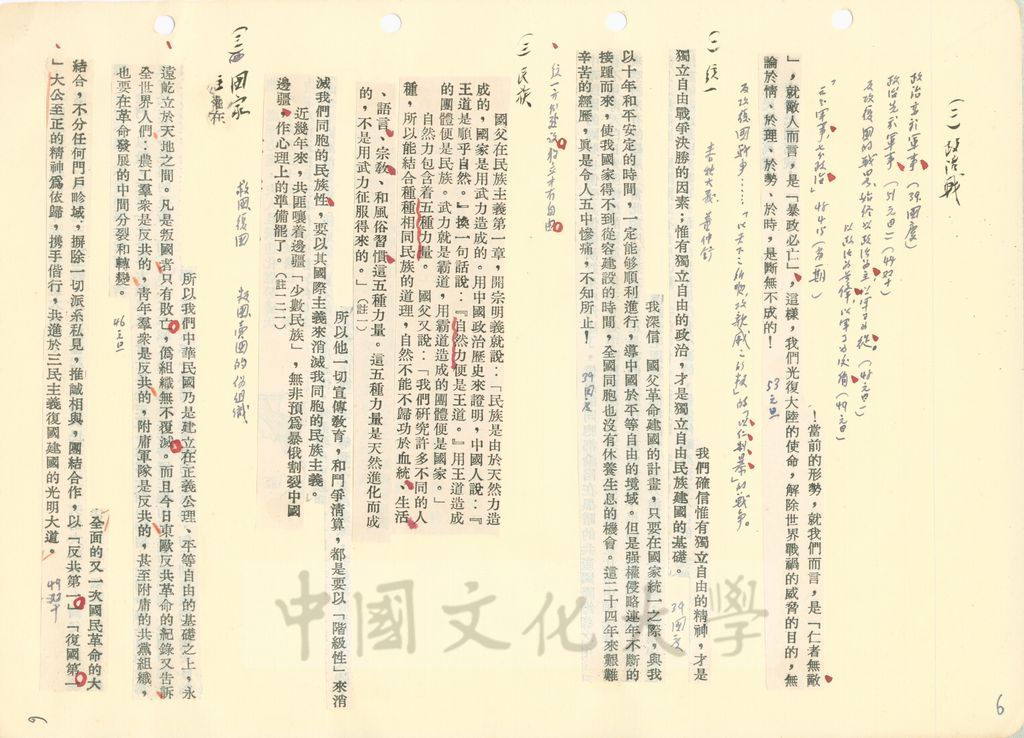 (二)政治戰
政治重於軍事(39國慶)
政治先於軍事(51元旦)(49双十)
！當前的形勢，就我們而言，是「仁者無敵
」，就敵人而言，是「暴政必亡」，這樣，我們光復大陸的使命，解除世界戰禍的威脅的目的，無
論於情、於理、於勢、於時，是斷無不成的！
53元旦
(一)統一
我們確信惟有獨立自由的精神，才是
獨立自由戰爭決勝的因素；惟有獨立自由的政治，才是獨立自由民族建國的基礎。
39國慶
我深信　國父革命建國的計畫，只要在國家統一之際，與我
以十年和平安定的時間，一定能夠順利進行，導中國於平等自由的境域。但是强權侵略連年不斷的
接踵而來，使我國家得不到從容建設的時間，全國同胞也沒有休養生息的機會。這二十四年來艱難
辛苦的經歷，真是令人五中慘痛，不知所止！
39國慶
統一才有建設獨立才有自由
(二)民族
國父在民族主義第一章，開宗明義就說：「民族是由於天然力造
成的，國家是用武力造成的。用中國政治歷史來證明，中國人說：『
王道是順乎自然。』換一句話說：『自然力便是王道。』用王道造成
的團體便是民族。武力就是霸道，用霸道造成的團體便是國家。」
自然力包含着五種力量。　國父又說：「我們研究許多不同的人
種，所以能結合種種相同民族的道理，自然不能不歸功於血統、生活
、語言、宗敎、和風俗習慣這五種力量。這五種力量是天然進化而成
的，不是用武力征服得來的。」(註一)
所以他一切宣傳敎育，和鬥爭清算，都是要以「階級性」來消
滅我們同胞的民族性，要以其國際主義來消滅我同胞的民族主義。
近幾年來，共匪嚷着邊疆「少數民族」，無非預為暴俄割裂中國
邊疆，作心理上的準備罷了。(註一二一)
(三)國家
救國復國　叛國賣國的偽組織
所以我們中華民國乃是建立在正義公理、平等自由的基礎之上，永
遠屹立於天地之間。凡是叛國者只有敗亡，偽組織無不覆滅。而且今日東歐反共革命的紀錄又告訴
全世界人們：農工羣衆是反共的，靑年羣衆是反共的，附庸軍隊是反共的，甚至附庸的共黨組織，
也要在革命發展的中間分裂和轉變。
46元旦
全面的又一次國民革命的大
結合，不分任何門戶畛域，摒除一切派系私見，推誠相與，團結合作，以「反共第一」「復國第一
」大公至正的精神為依歸，携手偕行，共進於三民主義復國建國的光明大道。
49双十
中國文化大學
6